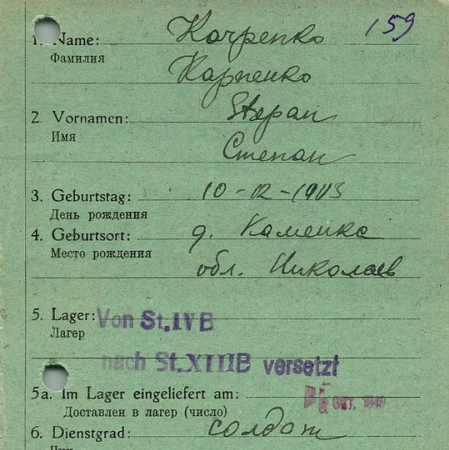 159
1. Name: Карпенко
Фамилия Карпенко
2. Vornamen: Stepan
Имя Степан
3. Geburtstag: 10-12-1903
День рождения
4. Geburtsort: д. Каменка
Место рождения обл. Николаев
5. Lager: Von St.IVB
Лагерь
nach St.XIIIB versetzt
5a. Im Lager eingeliefert am:
Доставлен в лагерь (число)
6. Dienstgrad: солдат